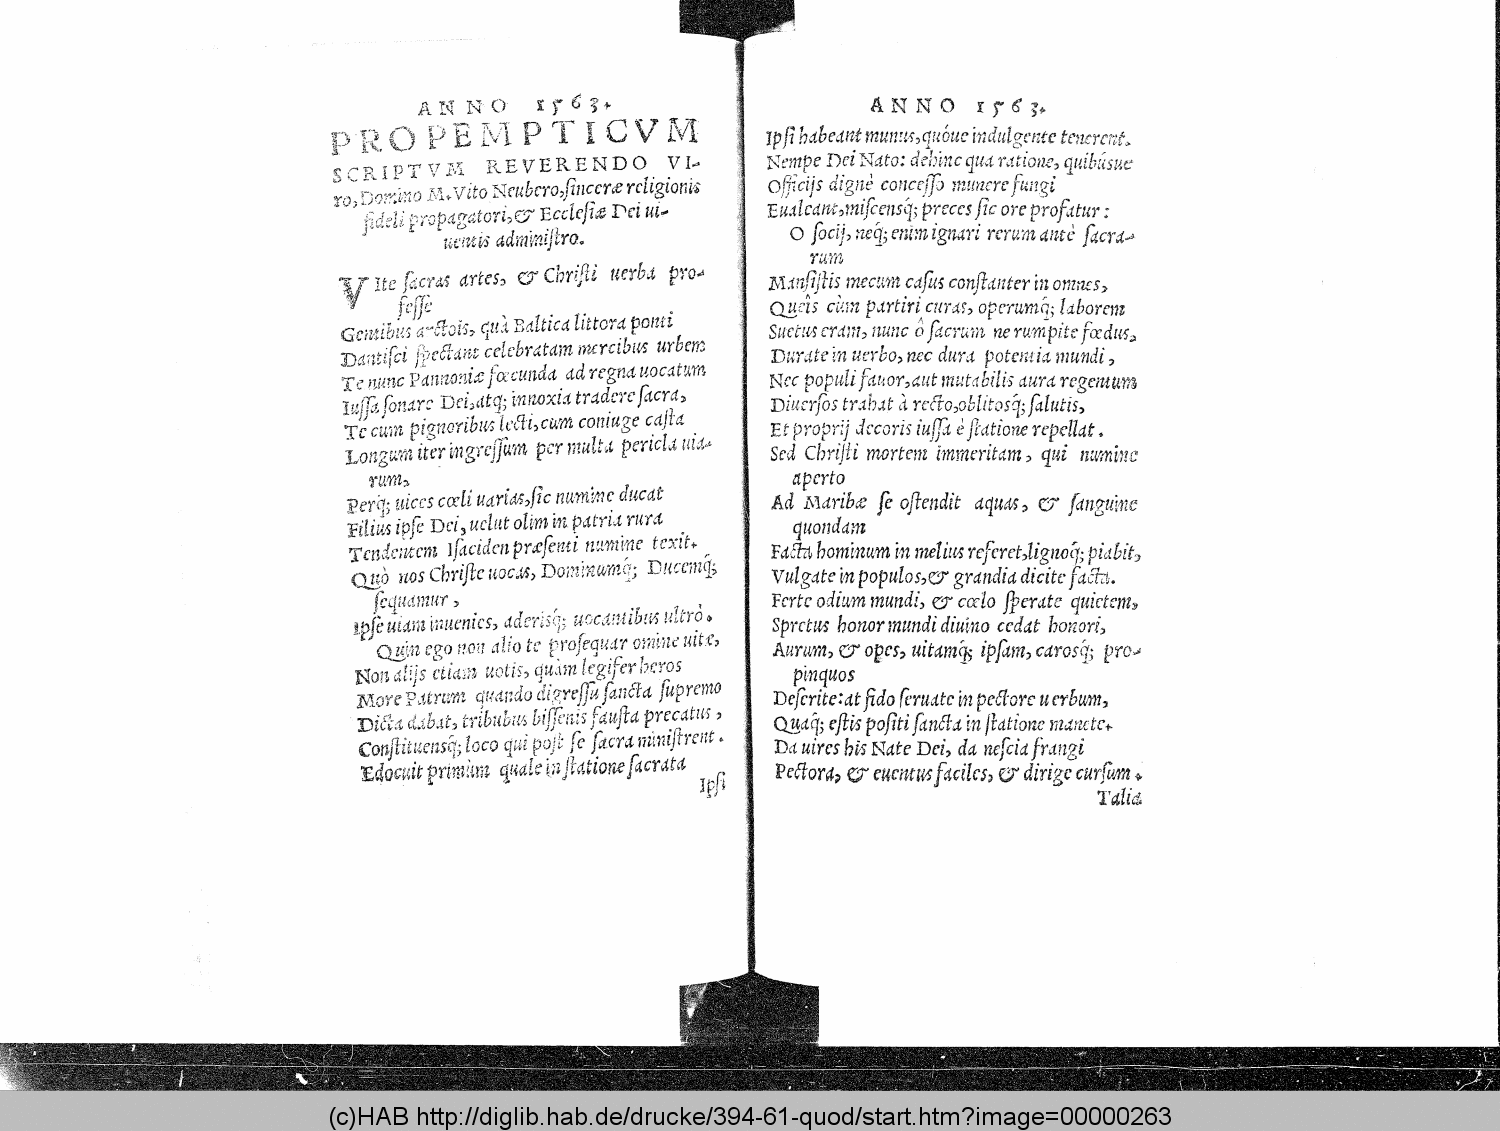 ANNO 1563.
PROPEMPTICVM
SCRIPTVM REVERENDO VI-
ro, Domino M. Vito Neubero, ſinceræ religionis
fideli propagatori, & Eccleſiæ Dei ui-
uentis adminiſtro.
VIte ſacras artes, & Chriſti uerba pro-
feſſe
Gentibus arctois, quà Baltica littora ponti
Dantiſci ſpectant celebratam mercibus urbem
Te nunc Pannoniæ fœcunda ad regna uocatum
Iuſſa ſonare Dei, atq; innoxia tradere ſacra,
Te cum pignoribus lecti, cum coniuge caſta
Longum iter ingreſſum per multa pericla uia-
rum,
Perq; uices cœli uarias, ſic numine ducat
Filius ipſe Dei, uelut olim in patria rura
Tendentem Iſaciden præſenti numine texit.
Quò nos Chriſte uocas, Dominumq́; Ducemq́;
ſequamur,
Ipſe uiam inuenies, aderisq́; uocantibus ultrò.
Quin ego non alio te proſequar omine uite,
Non alijs etiam uotis, quàm legifer heros
More Patrum quando digreſſu ſancta ſupremo
Dicta dabat, tribubus biſſenis fauſta precatus,
Conſtituensq́; loco qui poſt ſe ſacra miniſtrent.
Edocuit primùm quale in ſtatione ſacrata
Ipſi
ANNO 1563.
Ipſi habeant munus, quóue indulgente tenerent.
Nempe Dei Nato: dehinc qua ratione, quibúsue
Officijs dignè conceſſo munere fungi
Eualeant, miſcensq́; preces ſic ore profatur:
O ſocij, neq́; enim ignari rerum antè ſacra-
rum
Manſiſtis mecum caſus conſtanter in omnes,
Queîs cùm partiri curas, operumq́; laborem
Suetus eram, nunc ô ſacrum ne rumpite fœdus,
Durate in uerbo, nec dura potentia mundi,
Nec populi fauor, aut mutabilis aura regentum
Diuerſos trahat à recto, oblitosq́; ſalutis,
Et proprij decoris iuſſa è ſtatione repellat.
Sed Chriſti mortem immeritam, qui numine
aperto
Ad Maribæ ſe oſtendit aquas, & ſanguine
quondam
Facta hominum in melius referet, lignoq́; piabit,
Vulgate in populos, & grandia dicite facta.
Ferte odium mundi, & cœlo ſperate quietem,
Spretus honor mundi diuino cedat honori,
Aurum, & opes, uitamq́; ipſam, carosq́; pro-
pinquos
Deſerite: at fido ſeruate in pectore uerbum,
Quaq́; eſtis poſiti ſancta in ſtatione manete.
Da uires his Nate Dei, da neſcia frangi
Pectora, & euentus faciles, & dirige curſum.
Talia
(c)HAB http://diglib.hab.de/drucke/394-61-quod/start.htm?image=00000263